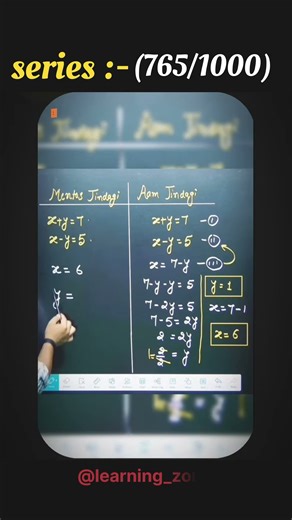 series :- (765/1000)
Mentos Jindagi
x+y=7
x-y=5
x = 6
y =
Aam Jindagi
x+y=7 - (i)
x-y=5 - (ii)
x = 7-y - (iii)
7-y-y=5
7-2y=5
7-5=2y
2=2y
1=2/2=y
y=1
x=7-1
x=6
@learning_zo